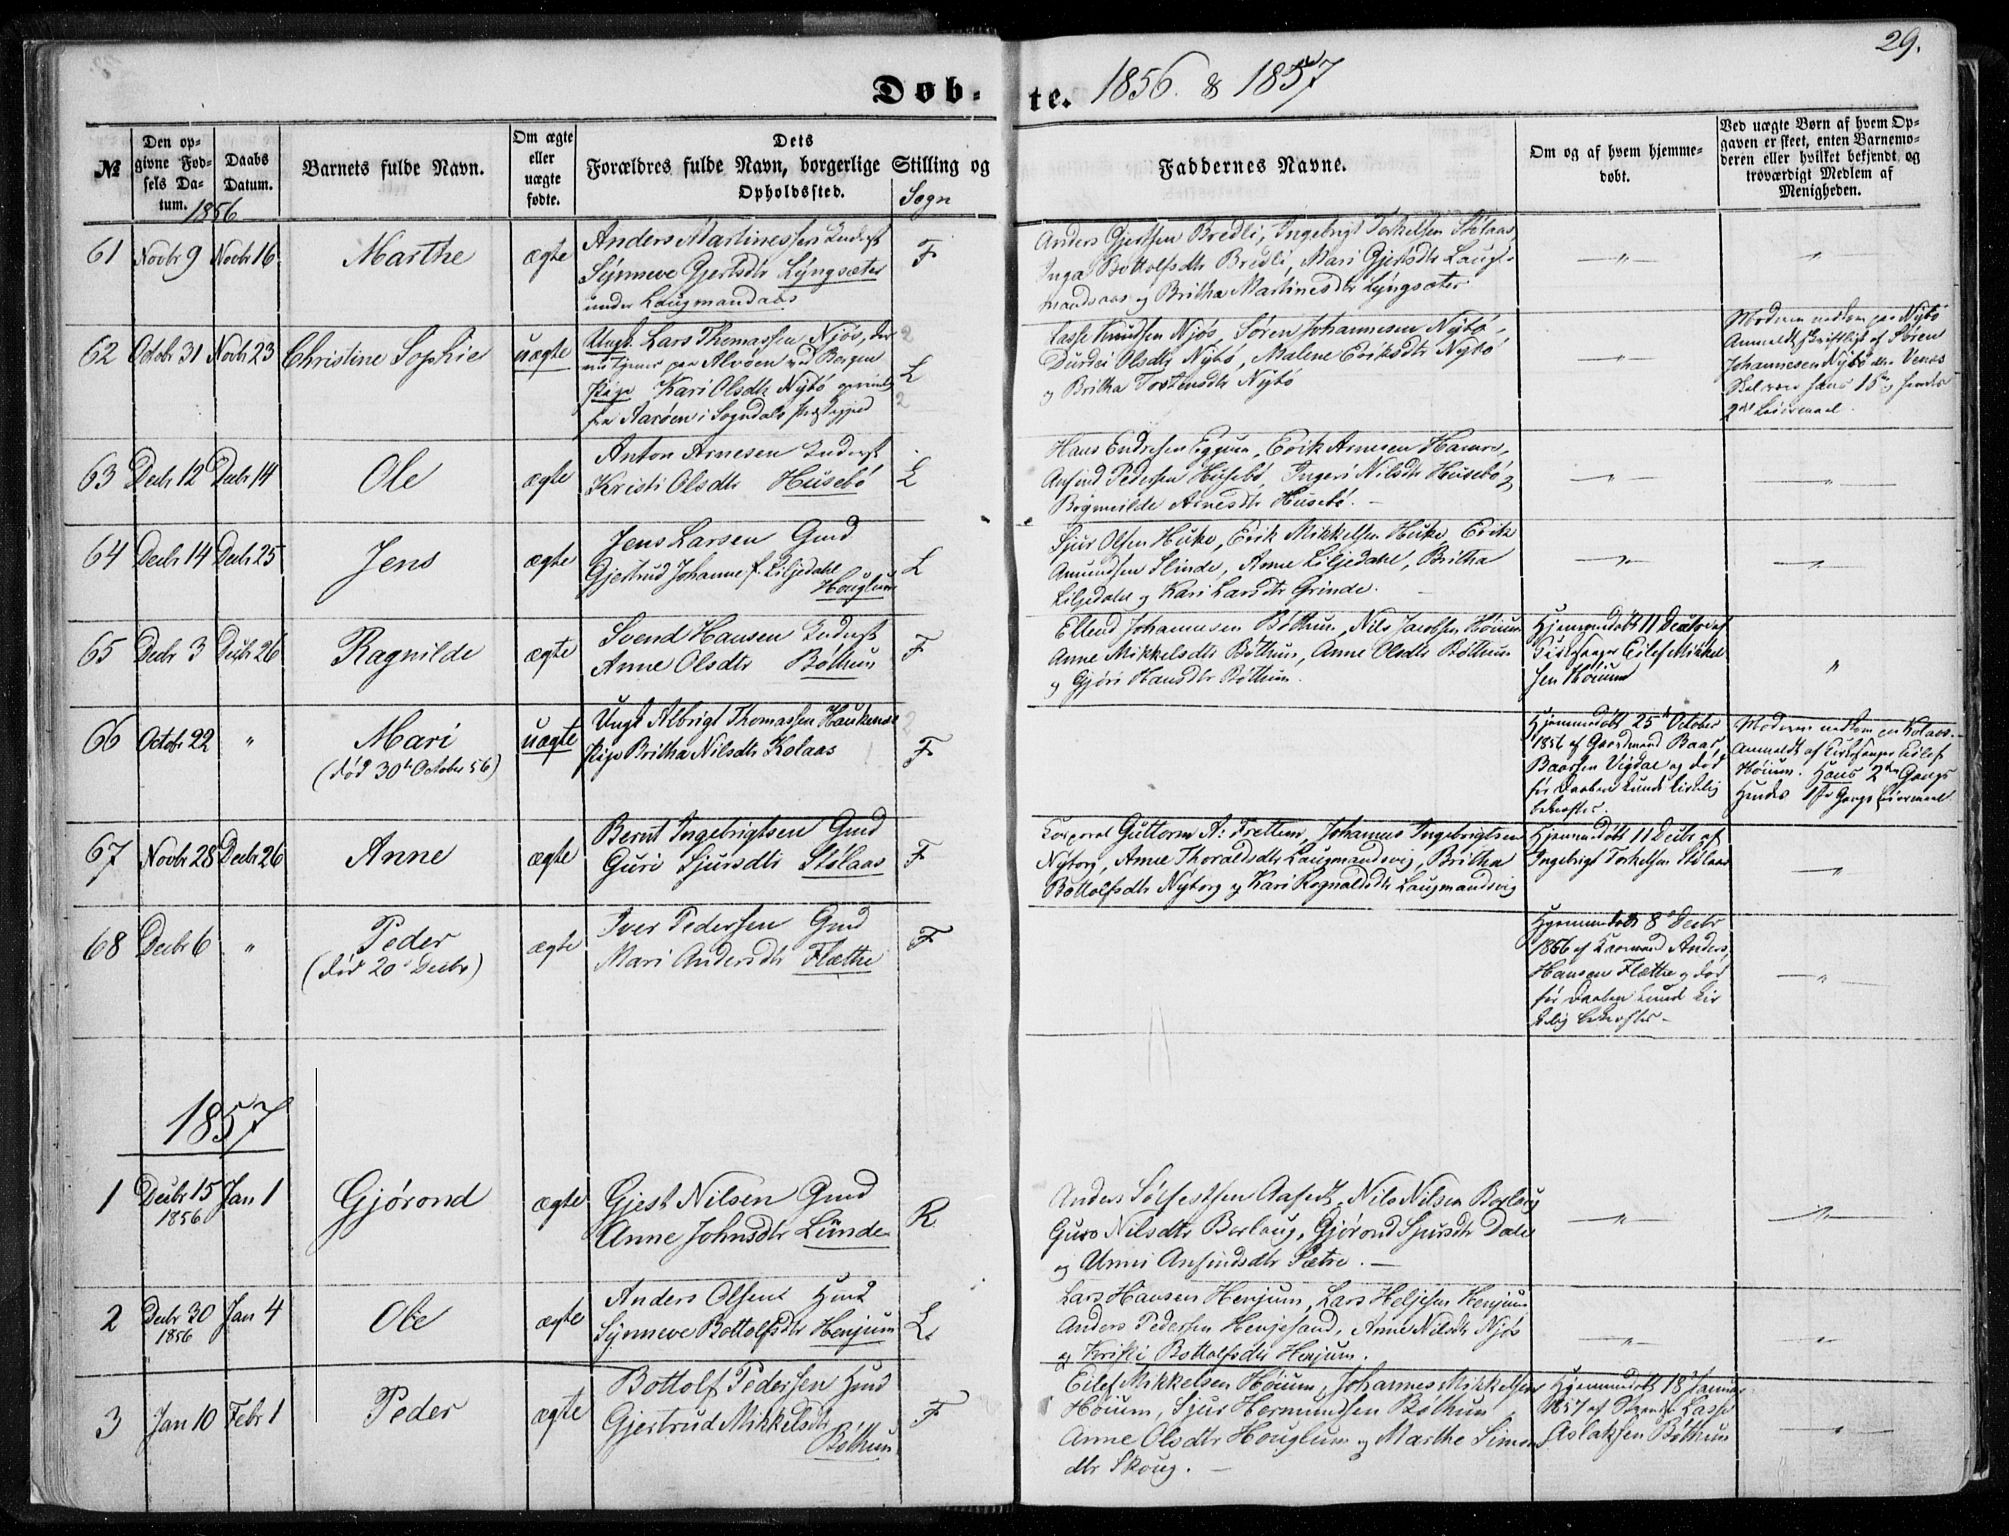 29.
Døb- te. 1856. & 1857
№
Den opgivne Fødsels Datum.
1856
Daabs Datum.
Barnets fulde Navn.
Om ægte eller uægte fødte.
Dets Forældres fulde Navn, borgerlige Stilling og Opholdssted.
Sogn
Faddernes Navne.
Om og af hvem hjemmedøbt.
Ved uægte Børn af hvem Opgaven er skeet, enten Barnemoderen eller hvilket bekjendt og troværdigt Medlem af Menigheden.
61 Novbr 9 Novbr 16 Marthe ægte
Anders Martinessen Inderst
Synneve Gjertsdtr Lyngsæter
under Laugmandaas
F
Anders Gjertsen Bredli, Ingebrigt Torkelsen Stølaas,
Inga Bottolfsdtr Bredli, Mari Gjertsdtr Laug-
mandaas og Britha Martinesdtr Lyngsæter
62 Octobr 31 Novbr 23 Christine Sophie uægte
Ungk. Lars Thomassen Njøs, der
nu tjener paa Alvøen ved Bergen
Pige Kari Olsdtr Nybø
fra Aarøen i Sogndals Præstegjeld
2
L
2
Lasse Knudsen Njøs, Søren Johannesen Nybø,
Durdei Olsdtr Nybø, Malene Eriksdtr Nybø
og Britha Torstensdtr Nybø
Moderen paa Nybø
Anmeldt skriftligt af Søren
Johannesen Nybø
hans 1ste og hendes
2det Leiermaal.
63 Decbr 12 Decbr 14 Ole ægte
Anton Arnesen Inderst
Kristi Olsdtr Husebø
L
Hans Endresen Eggum, Erik Arnesen Hamre,
Anfind Pedersen Husebø, Ingeri Nilsdtr Husebø og
Arnesdtr Husebø.
64 Decbr 14 Decbr 25 Jens ægte
Jens Larsen Gmd
Gjertrud Johanne f. Liljedahl
Houglum
L
Sjur Olsen Huke, Erik Mikkelsen Huke, Erik
Amundsen Slinde, Anne Liljedahl, Britha
Liljedahl og Kari Larsdtr Grinde.
65 Decbr 3 Decbr 26 Ragnilde ægte
Svend Hansen Inderst
Anne Olsdtr Bøthun
F
Ellend Johannesen Bøthun, Nils Jacobsen Høium
Anne Mikkelsdtr Bøthun, Anne Olsdtr Bøthun
og Gjøri Hansdtr Bøthun.
Hjemmedøbt 11 Decbr af
Kirkesanger Eilef Mikkel
sen Høium
"
66 Octobr 22 " Mari uægte
(død 30te October 56)
Ungk Albrigt Thomassen Haukenæs
Pige Britha Nilsdtr Kolaas
2
F
Hjemmedøbt 25de October
1856 af Gaardmand Baar
Baarsen Vigdal og død
før Daaben kunde kirkelig
bekræftes.
Moderen Kolaas.
Anmeldt af Kirkesanger Eilef
Høium. Hans 2den Gangs
Hendes 1ste Gangs Leiermaal
67 Novbr 28 Decbr 26 Anne ægte
Bernt Ingebrigtsen Gmd
Guri Sjursdtr Stølaas
F
Corporal Guttorm A: Frettem, Johannes Ingebrigtsen
Nytorg, Anne Thoraldsdtr Laugmandsvig, Britha
Bottolfsdtr Nytorg og Kari Rognaldsdtr Laugmandsvig
Hjemmedøbt 11 Decbr af
Ingebrigt Torkelsen Stølaas
68 Decbr 6 " Peder ægte
(død 20de Decbr)
Iver Pedersen Gmd
Mari Andersdtr Flæthe
F
Hjemmedøbt 8de Decbr
1856 af Anders
Hansen Flæthe og død
før Daaben kunde kir
kelig bekræftes.
1857
1 Decbr 15 1856 Jan 1 Gjørond ægte
Gjest Nilsen Gmd
Anne Johnsdtr Lunde
R.
Anders Sølfestsen Aafedt, Nils Nilsen Borlaug
Guro Nilsdtr Borlaug, Gjørond Sjursdtr Dale
og Unni Anfindsdtr Sætre.
2 Decbr 30 1856 Jan 4 Ole ægte
Anders Olsen Hmd
Synneve Bottolfsdtr Henjum
L.
Lars Hansen Henjum, Lars Heljesen Henjum
Anders Pedersen Henjesand, Anne Nilsdtr Njøs
og Kristi Bottolfsdtr Henjum.
3 Jan 10 Febr 1 Peder ægte
Bottolf Pedersen Hmd
Gjertrud Mikkelsdtr
Bøthun
F
Eilef Mikkelsen Høium, Johannes Mikkelsen
Høium, Sjur Hermundsen Bøthun
Anne Olsdtr Houglum og Marthe Simons
dtr Skoug.
Hjemmedøbt 18 Januar
1857 af Lasse
Aslaksen Bøthun